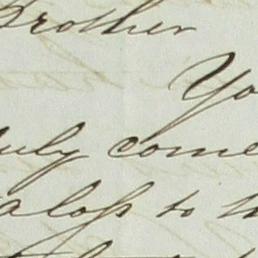 Brother
Yo
uly come
a loss to